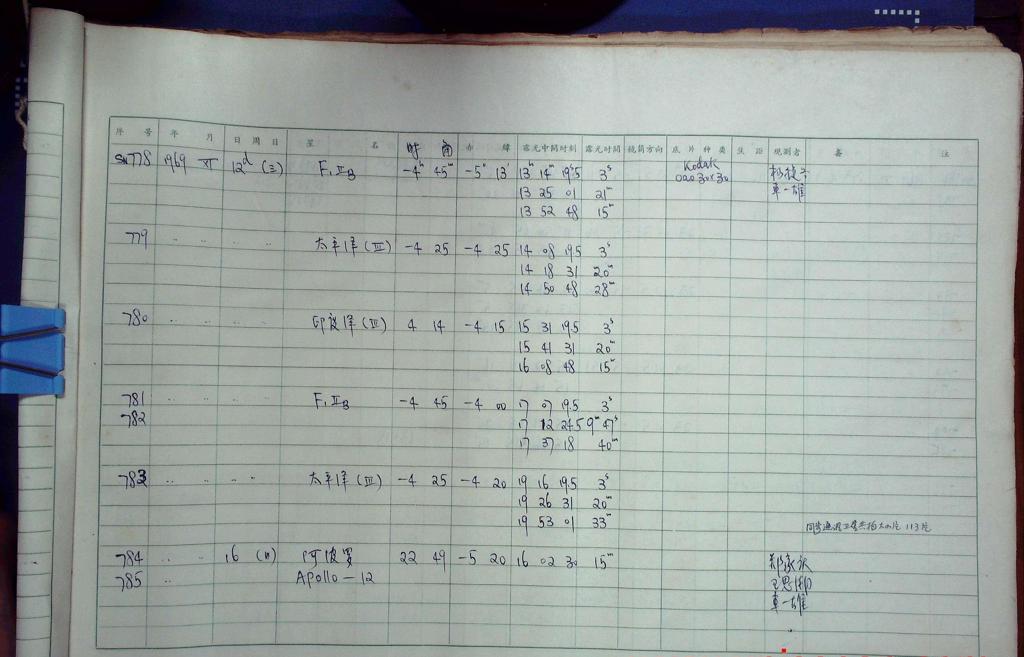 序 号 年 月 日 周 日 星 名 时 角 赤 纬 露光中间时刻 露光时间 镜筒方向 底片种类 焦距 观测者 备 注
SN778 1969 XI 12d (三) F1 IIB -4h 45m -5° 13' 13h 14m 19s.5 3s Kodak
0a0 30×30
13 25 01 21m 卓一雄
13 52 48 15m
779 .. .. .. .. 太平洋(III) -4 25 -4 25 14 08 19.5 3s
14 18 31 20m
14 50 48 28m
780 .. .. .. .. 印度洋(III) 4 14 -4 15 15 31 19.5 3s
15 41 31 20m
16 08 48 15m
781 .. .. .. .. F1 IIB -4 45 -4 00 17 07 19.5 3s
782 17 12 24.5 9m 47s
17 37 18 40m
783 .. .. .. .. 太平洋(III) -4 25 -4 20 19 16 19.5 3s
19 26 31 20m
19 53 01 33m
113片
784 .. .. 16 (日) 阿波罗 22 49 -5 20 16 02 30 15m
785 .. Apollo-12
卓一雄